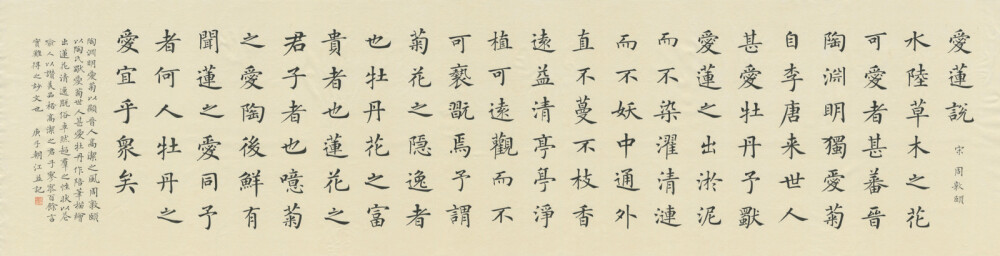 愛蓮說
宋 周敦頤
水陸草木之花
可愛者甚蕃晉
陶淵明獨愛菊
自李唐来世人
甚愛牡丹予獨
愛蓮之出淤泥
而不染濯清漣
而不妖中通外
直不蔓不枝香
遠益清亭亭淨
植可遠觀而不
可褻翫焉予謂
菊花之隱逸者
也牡丹花之富
貴者也蓮花之
君子者也噫菊
之愛陶後鮮有
聞蓮之愛同予
者何人牡丹之
愛宜乎眾矣
陶淵明愛菊以顯晉人高潔之風周敦頤
以陶氏獨愛菊世人甚愛牡丹作陪筆描繪
出蓮花清逸脫俗卓然超羣之性狀以
喻人以讚美品格高潔之君子寥寥百餘言
實難得之妙文也 庚子朝江並記